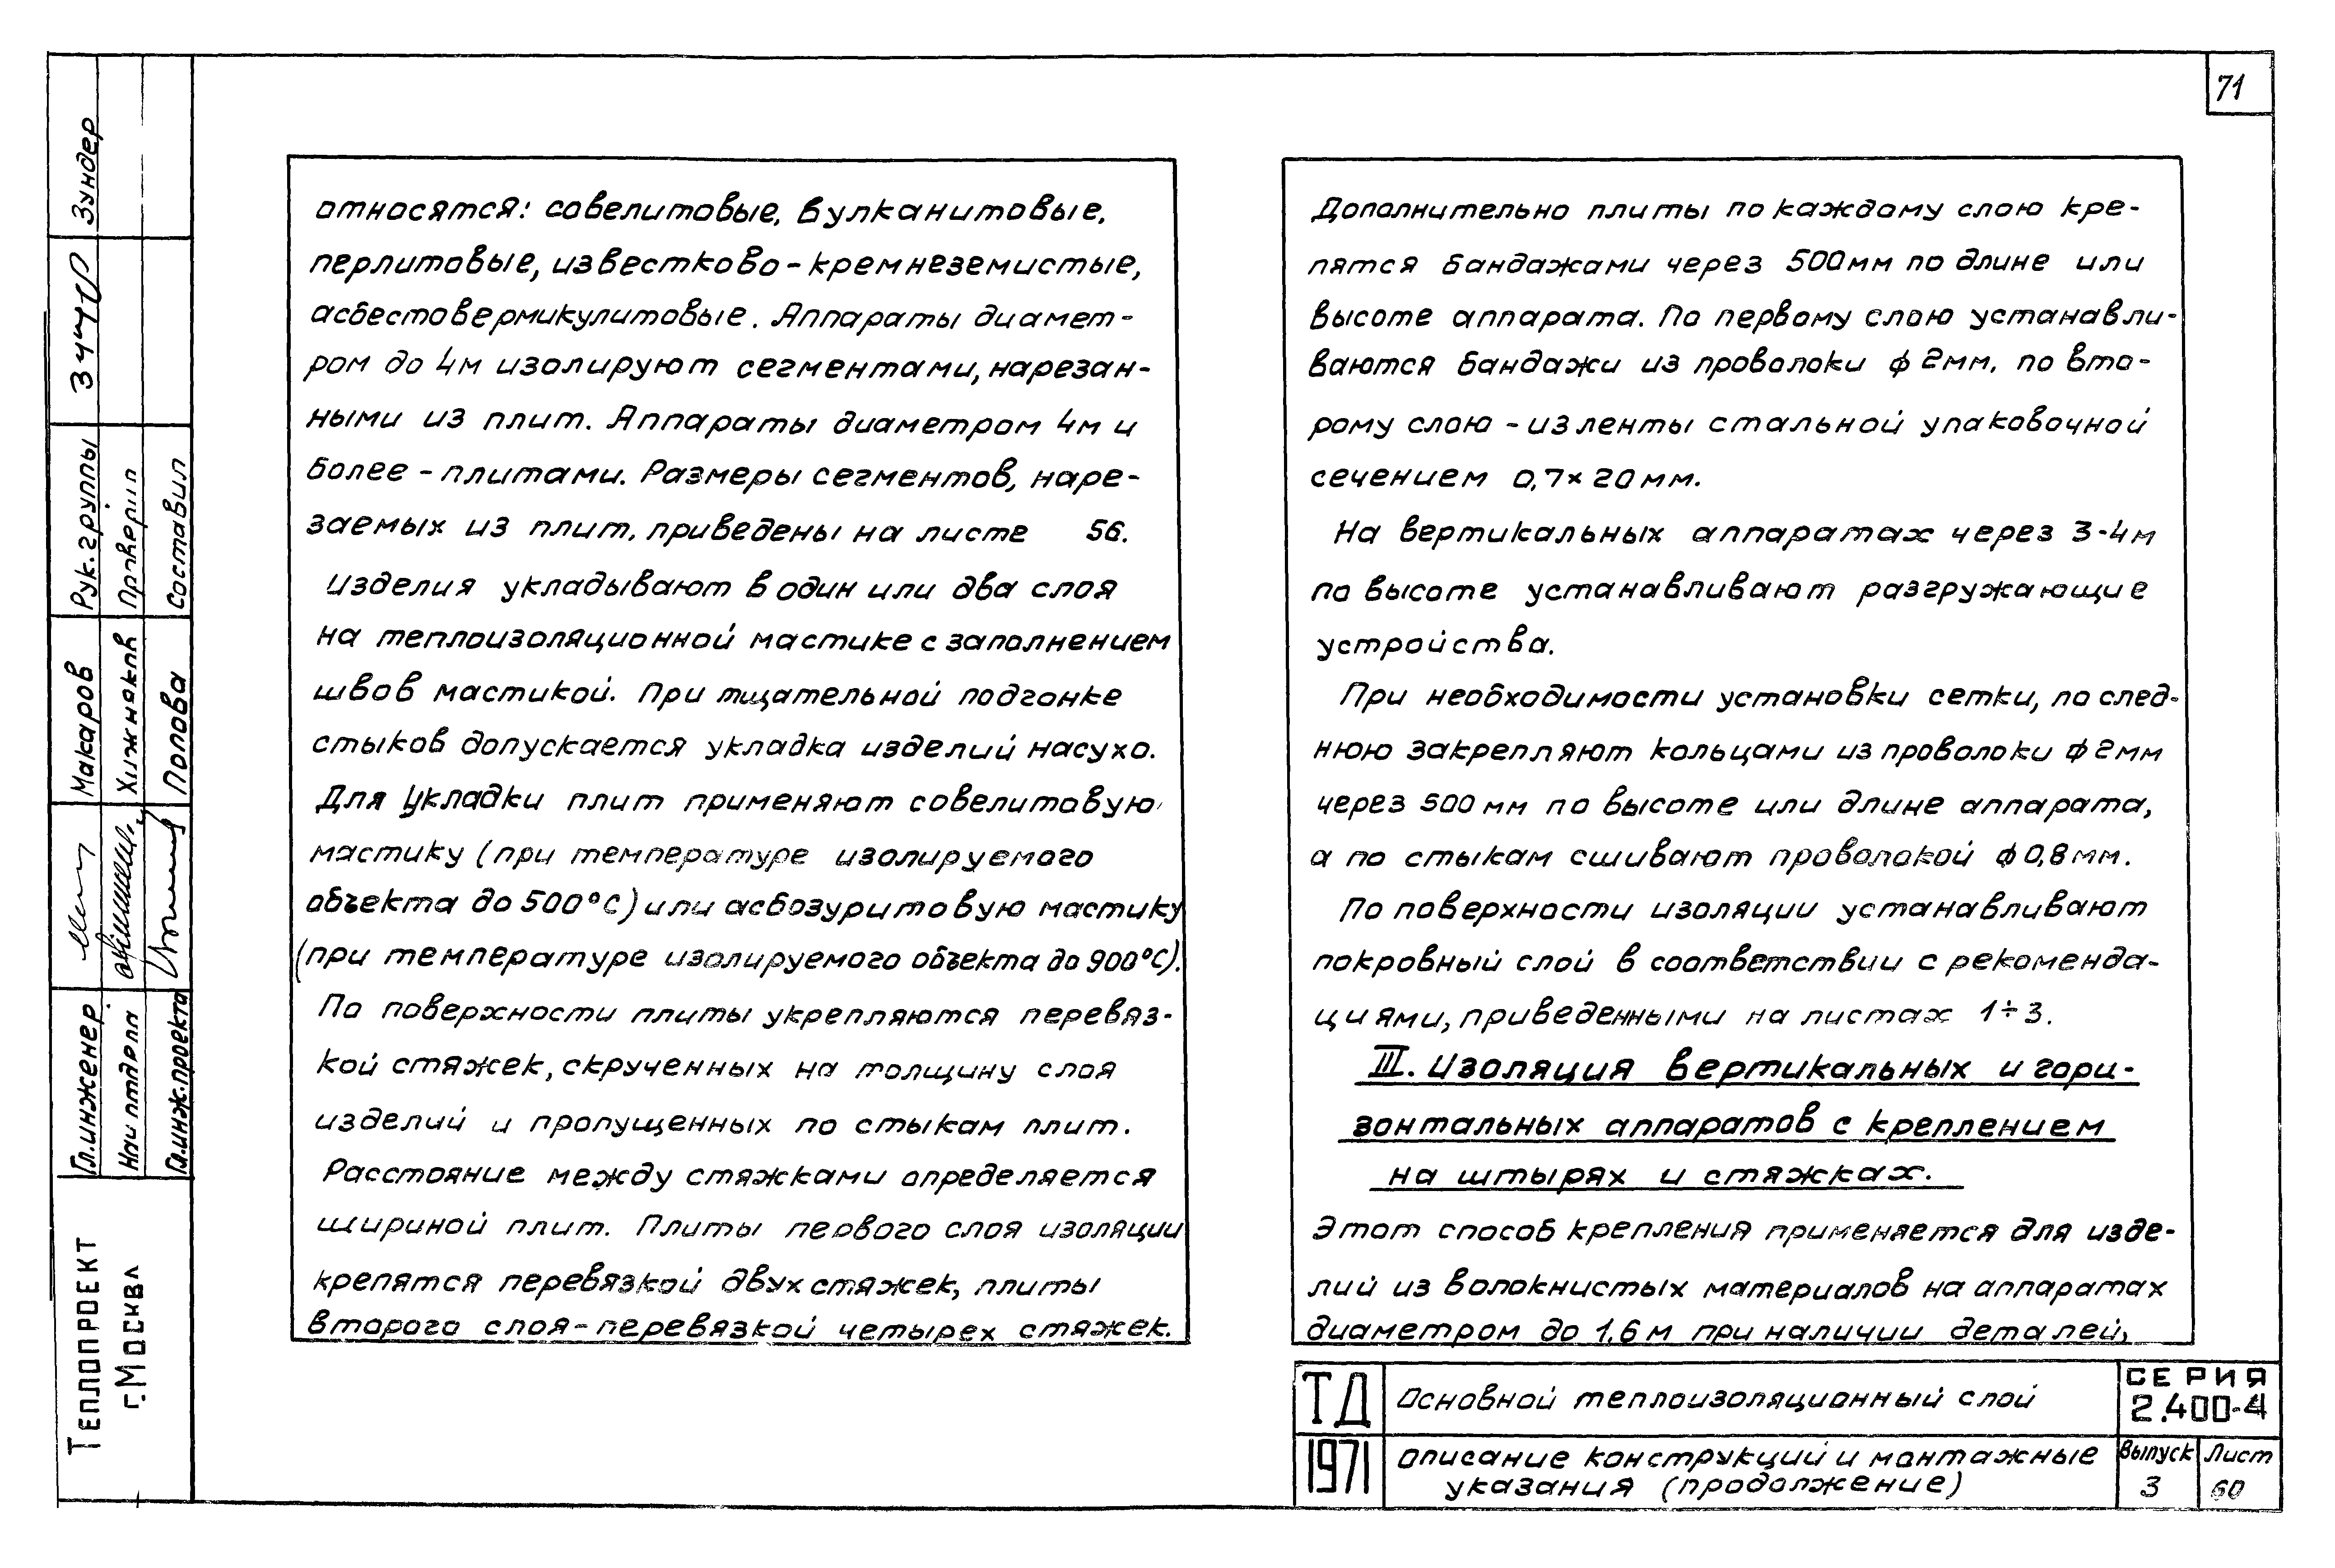 71
относятся: совелитовые, вулканитовые,
перлитовые, известково-кремнеземистые,
асбестовермикулитовые. Аппараты диамет-
ром до 4м изолируют сегментами, нарезан-
ными из плит. Аппараты диаметром 4м и
более - плитами. Размеры сегментов, наре-
заемых из плит, приведены на листе 56.
Изделия укладывают в один или два слоя
на теплоизоляционной мастике с заполнением
швов мастикой. При тщательной подгонке
стыков допускается укладка изделий насухо.
Для укладки плит применяют совелитовую
мастику (при температуре изолируемого
объекта до 500°С) или асбозуритовую мастику
(при температуре изолируемого объекта до 900°С).
По поверхности плиты укрепляются перевяз-
кой стяжек, скрученных на толщину слоя
изделий и пропущенных по стыкам плит.
Расстояние между стяжками определяется
шириной плит. Плиты первого слоя изоляции
крепятся перевязкой двух стяжек, плиты
второго слоя-перевязкой четырех стяжек.
Дополнительно плиты по каждому слою кре-
пятся бандажами через 500мм по длине или
высоте аппарата. По первому слою устанавли-
ваются бандажи из проволоки ф 2мм, по вто-
рому слою - из ленты стальной упаковочной
сечением 0,7×20мм.
На вертикальных аппаратах через 3-4м
по высоте устанавливают разгружающие
устройства.
При необходимости установки сетки, послед-
нюю закрепляют кольцами из проволоки ф 2мм
через 500мм по высоте или длине аппарата,
а по стыкам сшивают проволокой ф 0,8мм.
По поверхности изоляции устанавливают
покровный слой в соответствии с рекоменда-
циями, приведенными на листах 1÷3.
III. Изоляция вертикальных и гори-
зонтальных аппаратов с креплением
на штырях и стяжках.
Этот способ крепления применяется для изде-
лий из волокнистых материалов на аппаратах
диаметром до 1,6м при наличии деталей,
ТД
1971
Основной теплоизоляционный слой
Описание конструкций и монтажные
указания (продолжение)
СЕРИЯ
2.400-4
Выпуск
3
Лист
60
Теплопроект
г.Москва
Гл.инженер
Макаров
Рук.группы
Зундер
Нач отдела
Хижняков
Проверил
Гл.инж.проекта
Попова
Составил